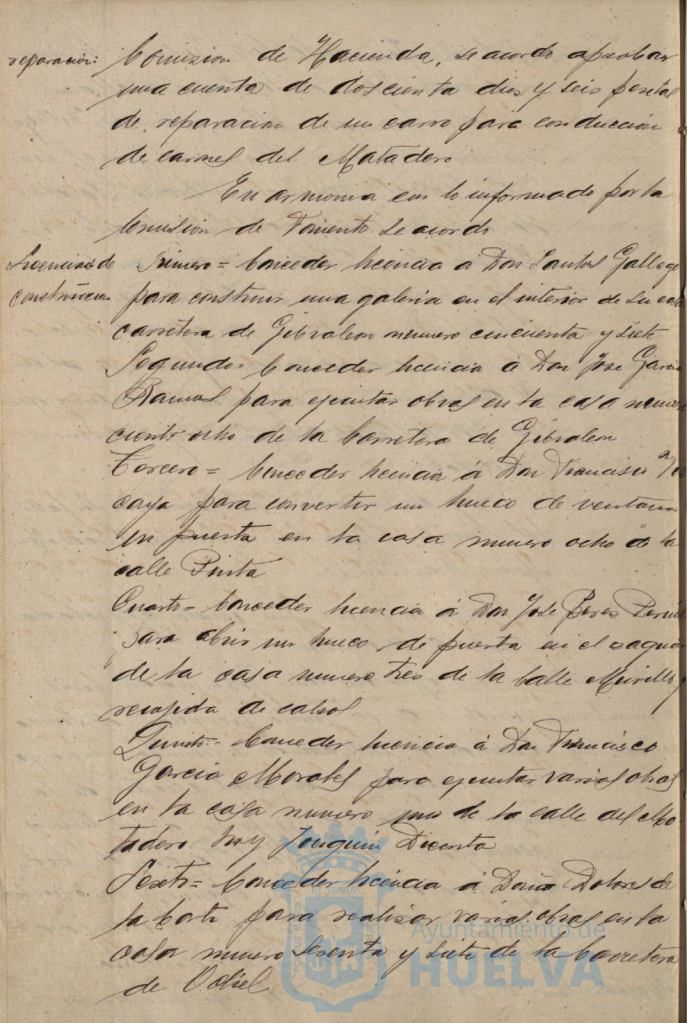 reparacion:
Comision de Hacienda, se acordo aprobar
una cuenta de doscienta dies y seis pesetas
de reparacion de un carro para conduccion
de carnes del Matadero
En armonia con lo informado por la
Comision de Fomento se acordo
Licencias de
construccion
Primero = Conceder licencia a Don Santos Gallego
para construir una galeria en el interior de su casa
carretera de Gibraleon numero cincuenta y siete
Segundo = Conceder licencia á Don Jose Garcia
Ramos para ejecutar obras en la casa numero
ciento ocho de la Carretera de Gibraleon
Tercero = Conceder licencia á Don Francisco
para convertir un hueco de ventana
en puerta en la casa numero ocho de la
calle Pinta
Cuarto = Conceder licencia á Don Jose Perez
para abrir un hueco de puerta en el zaguan
de la casa numero tres de la Calle Murillo y
recojida de
Quinto = Conceder licencia á Don Francisco
Garcia Morales para ejecutar varias obras
en la casa numero uno de la calle del Ma
tadero hoy Joaquin
Sexto = Conceder licencia á Doña Dolores de
la Corte para realizar varias obras en la
casa numero sesenta y siete de la Carretera
de Odiel
Ayuntamiento de
HUELVA